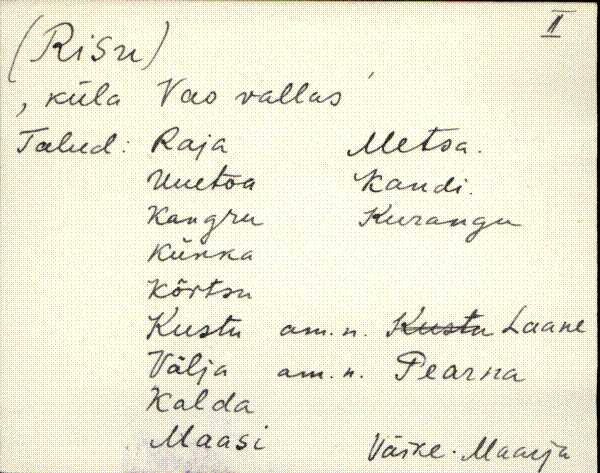 II
(Risu)
, küla Vao vallas
Talud: Raja Metsa.
Uuetoa Kandi.
Kangru Kurangu
Künka
Kõrtsu
Kustu am.n. Kustu Laane
Välja am.n. Pearna
Kalda
Maasi
Väike-Maarja